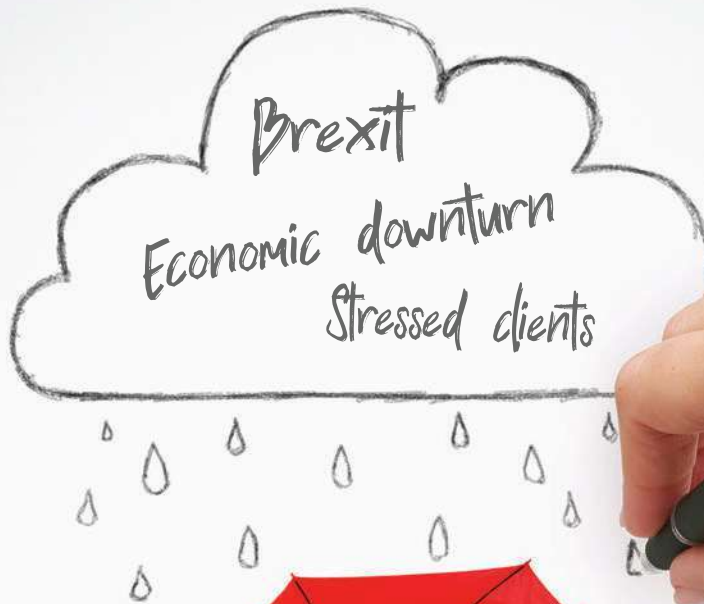 Brexit
Economic downturn
Stressed clients